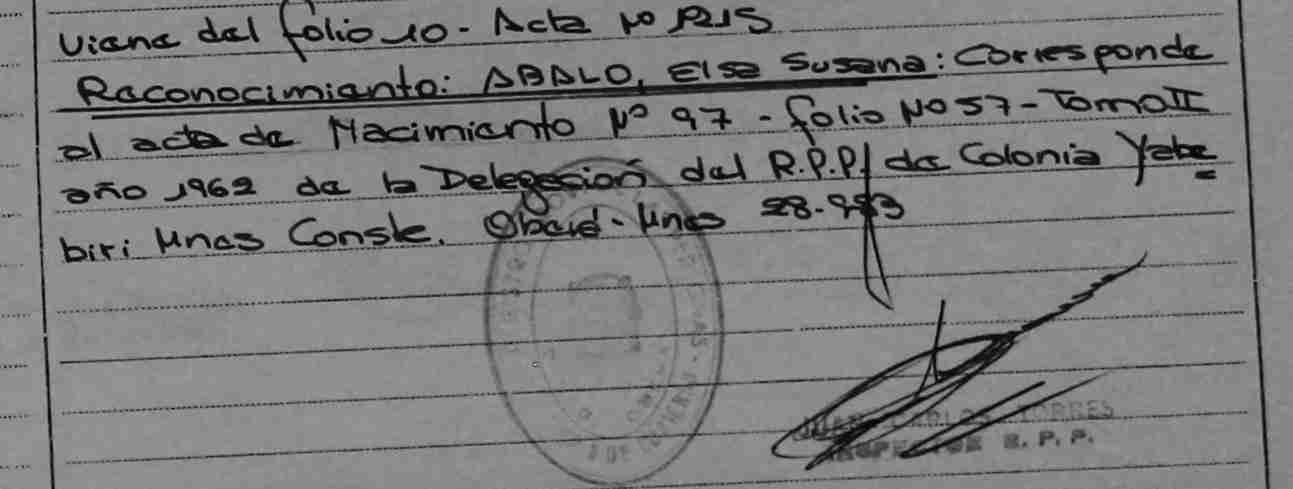 Viene del folio 10 - Acta Nº 215
Reconocimiento: ABALO, Elsa Susana: Corresponde
al acta de Nacimiento Nº 97 - folio Nº 57 - Tomo II
año 1962 de la Delegación del R.P.P. de Colonia Yabe
biri Mnes Conste. Obera - Mnes
JUAN CARLOS TORRES
INSPECTOR R. P. P.